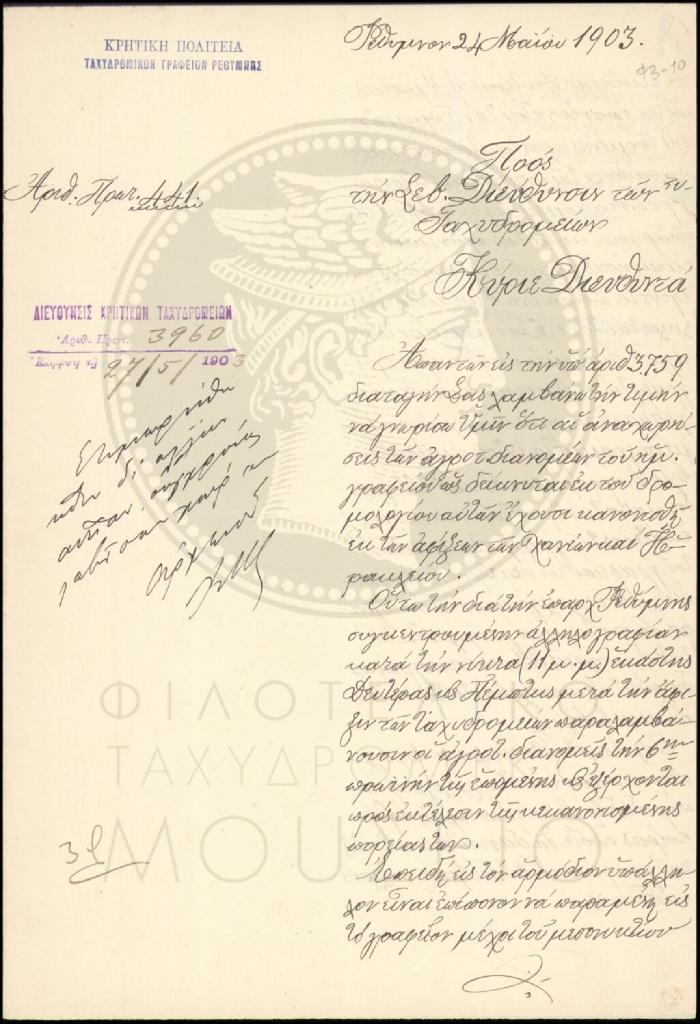 ΚΡΗΤΙΚΗ ΠΟΛΙΤΕΙΑ
ΤΑΧΥΔΡΟΜΙΚΟΝ ΓΡΑΦΕΙΟΝ ΡΕΘΥΜΝΗΣ
Ρέθυμνον 24 Μαΐου 1903.
Φ3-10
Ἀριθ. Πρωτ. 441.
Πρὸς
τὴν Σεβ. Διεύθυνσιν τῶν
Ταχυδρομείων
Κύριε Διευθυντά
ΔΙΕΥΘΥΝΣΙΣ ΚΡΗΤΙΚΩΝ ΤΑΧΥΔΡΟΜΕΙΩΝ
Ἀριθ. Πρωτ. 3960
27/5/1903
Ἀπαντῶν εἰς τὴν ὑπ' ἀριθ. 3759
διαταγήν Σας λαμβάνω τὴν τιμὴν
νὰ γνωρίσω Ὑμῖν ὅτι αἱ ἀναχωρή-
σεις τῶν ἀγροτ. διανομέων τοῦ ἡμ.
γραφείου ὡς δείκνυται ἐκ τοῦ δρο-
μολογίου αὐτῶν ἔχουσι κανονισθῆ
ἐκ τῶν ἀφίξεων τῶν Χανίων καὶ Ἡ-
ρακλείου.
Οὕτω τὴν διὰ τὴν ἐπαρχ. Ρεθύμνης
συγκεντρουμένην ἀλληλογραφίαν
κατὰ τὴν νύκτα (11 μ.μ.) ἑκάστης
Δευτέρας καὶ Πέμπτης μετὰ τὴν ἄφι-
ξιν τῶν ταχυδρομείων παραλαμβά-
νουσιν οἱ ἀγροτ. διανομεῖς τὴν 6ην
πρωϊνὴν τῆς ἑπομένης καὶ ἐξέρχονται
πρὸς ἐκτέλεσιν τῆς κεκανονισμένης
πορείας των.
Ἐπειδὴ εἰς τὸν ἁρμόδιον ὑπάλλη-
λον εἶναι ἐπίπονον νὰ παραμένῃ εἰς
τὸ γραφεῖον μέχρι τοῦ μεσονυκτίου
ΦΙΛΟΤΕΛΙΚΟ
ΤΑΧΥΔΡΟΜΙΚΟ
ΜΟΥΣΕΙΟ